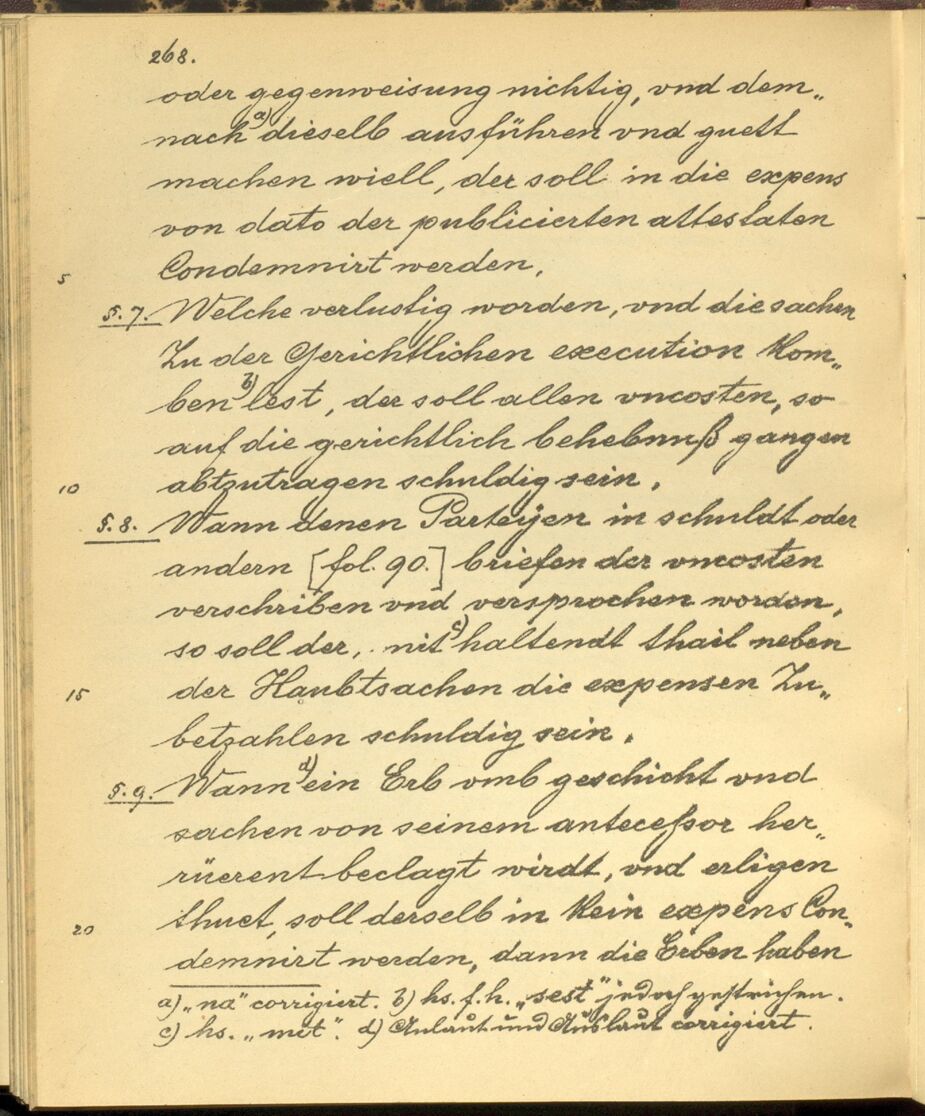 268.
oder gegenweisung nichtig, vnd dem„
nach a) dieselb ausführen vnd guett
machen wiell, der soll in die expens
von dato der publicierten attestaten
5 Condemnirt werden.
§. 7. Welche verlustig worden, vnd die sachen
Zu der Gerichtlichen execution Kom„
ben b) lest, der soll allen vncosten, so
auf die gerichtlich behebnuß gangen
10 abtzutragen schuldig sein.
§. 8. Wann denen Parteÿen in schuldt oder
andern [fol. 90.] briefen der vncosten
verschriben vnd versprochen worden,
so soll der, nit c) haltendt thail neben
15 der Haubtsachen die expensen Zu„
betzahlen schuldig sein.
§. 9. Wann d) ein Erb vmb geschicht vnd
sachen von seinem anteceßor her„
rüerent beclagt wirdt, vnd erligen
20 thuet, soll derselb in Kein expens Con„
demnirt werden, dann die Erben haben
a) „na" corrigiert. b) hs. f. h. „sest" jedoch gestrichen.
c) hs. „mit". d) Anlaut und Auslaut corrigiert.